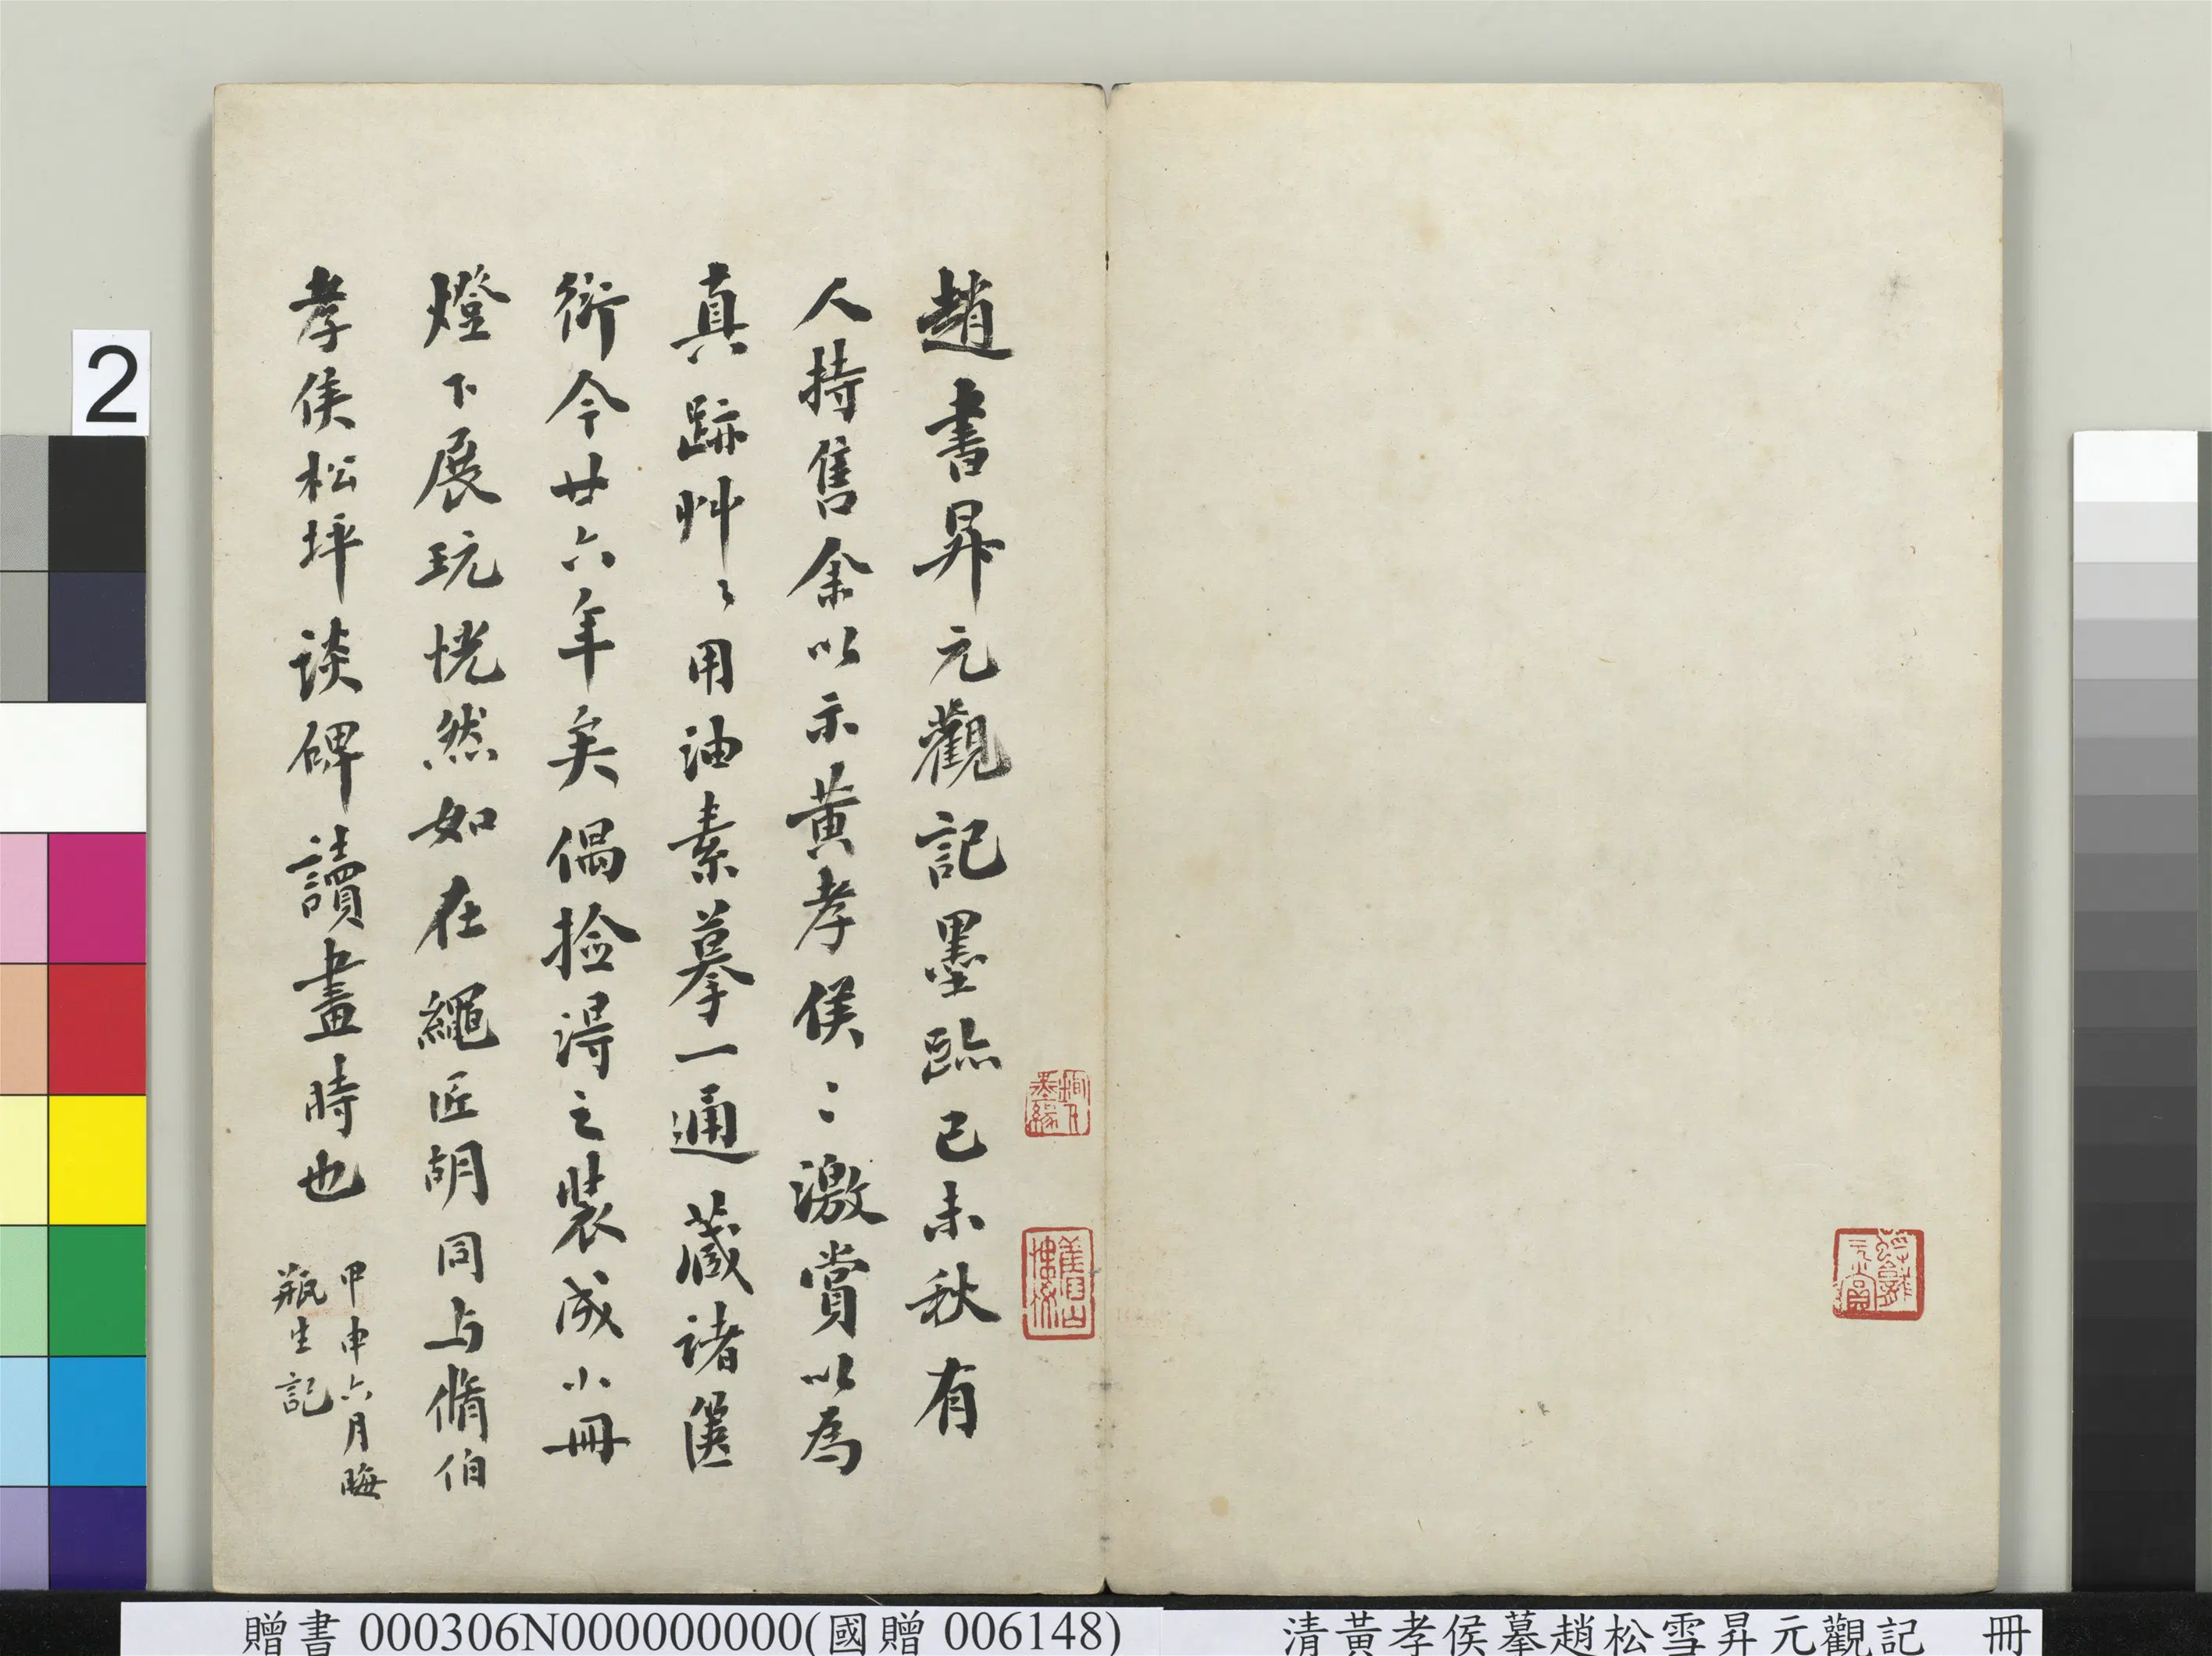 趙書昇元觀記墨跡己未秋有
人持售余以示黃孝侯〻激賞以為
真跡艸〻用油素摹一通藏諸篋
衍今廿六年矣偶撿得之裝成小冊
燈下展玩恍然如在繩匠胡同与脩伯
孝侯松坪談碑讀畫時也
甲申六月晦
瓶生記
2
贈書 000306N000000000(國贈 006148)
清黃孝侯摹趙松雪昇元觀記 冊